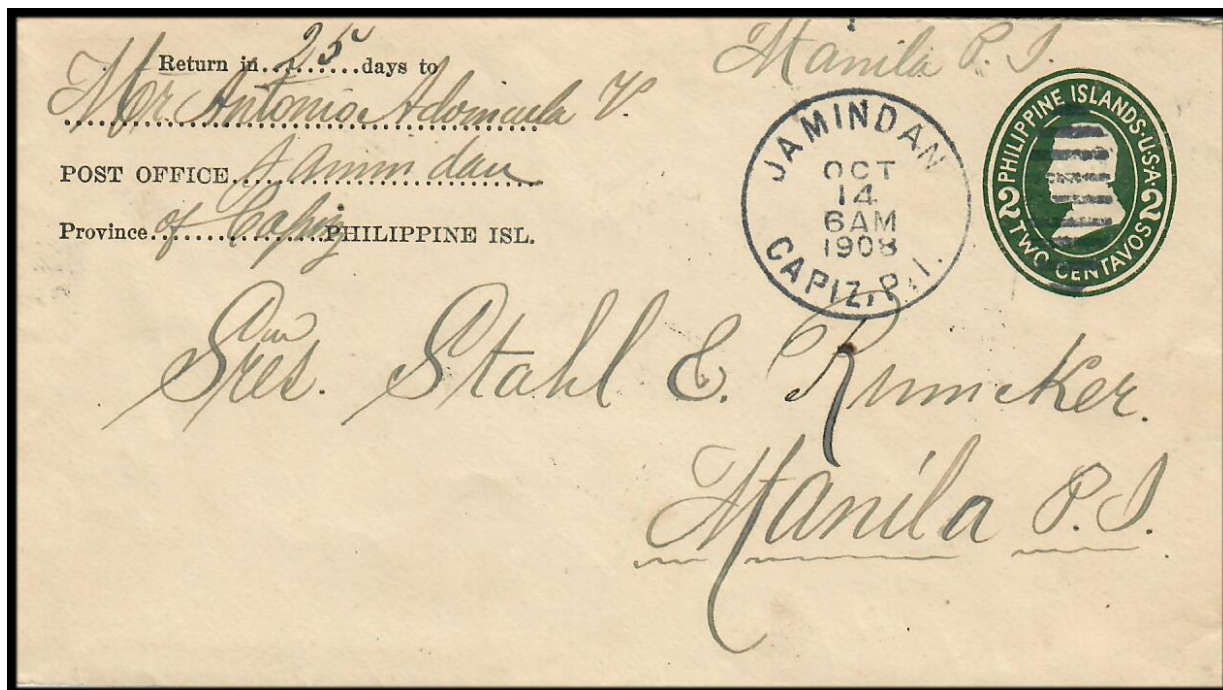 Manila P. I.
Return in 25 days to
Mor Antonio V.
POST OFFICE Jamindan
Province of Capiz PHILIPPINE ISL.
JAMINDAN
OCT
14
6AM
1908
CAPIZ, P. I.
PHILIPPINE ISLANDS·U·S·A·
2 TWO CENTAVOS 2
Sres. Stahl E. Rumcker.
Manila P. I.